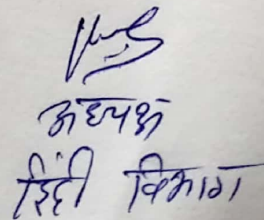 अध्यक्ष
हिंदी विभाग